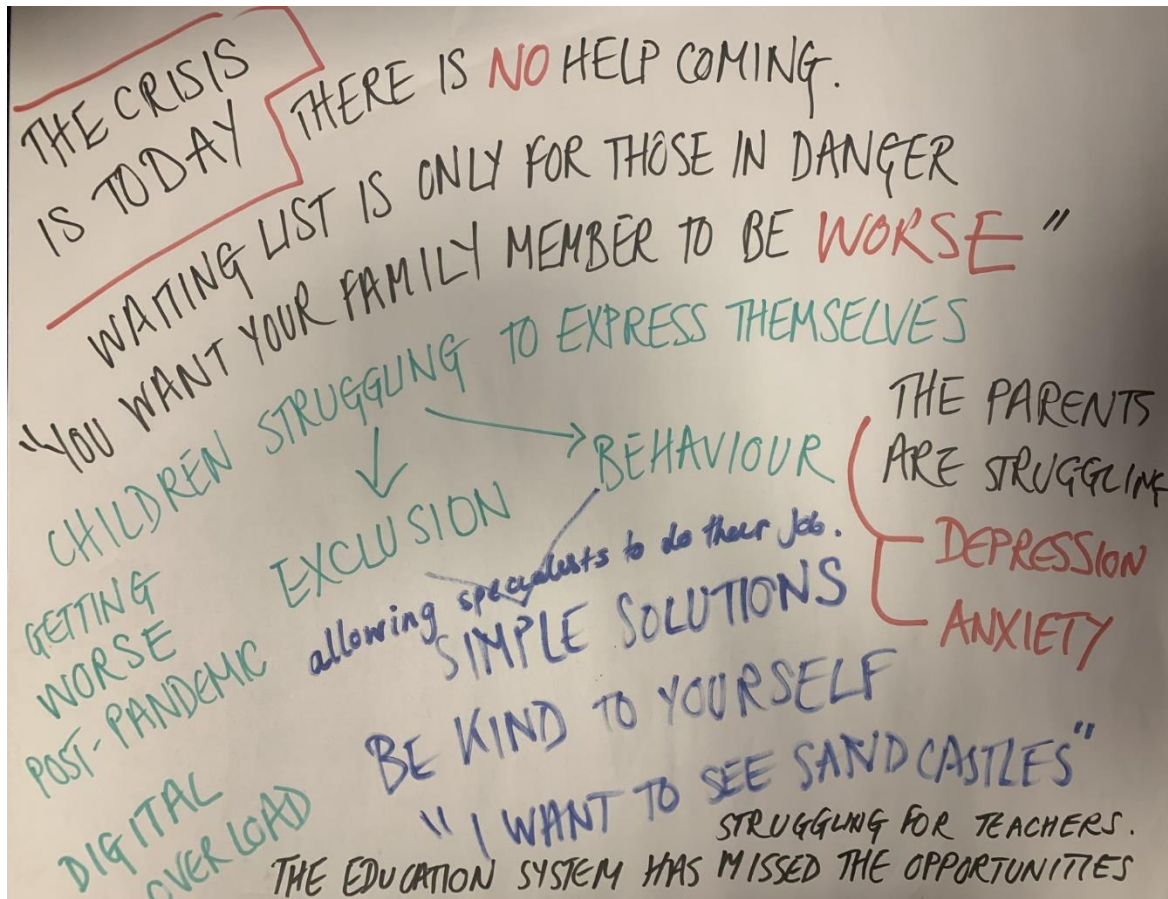 THE CRISIS
IS TODAY
THERE IS NO HELP COMING.
WAITING LIST IS ONLY FOR THOSE IN DANGER
"YOU WANT YOUR FAMILY MEMBER TO BE WORSE"
CHILDREN STRUGGLING TO EXPRESS THEMSELVES
BEHAVIOUR
EXCLUSION
THE PARENTS
ARE STRUGGLING
DEPRESSION
ANXIETY
GETTING
WORSE
POST-PANDEMIC
DIGITAL
OVERLOAD
allowing specialists to do their job.
SIMPLE SOLUTIONS
BE KIND TO YOURSELF
"I WANT TO SEE SANDCASTLES"
STRUGGLING FOR TEACHERS.
THE EDUCATION SYSTEM HAS MISSED THE OPPORTUNITIES